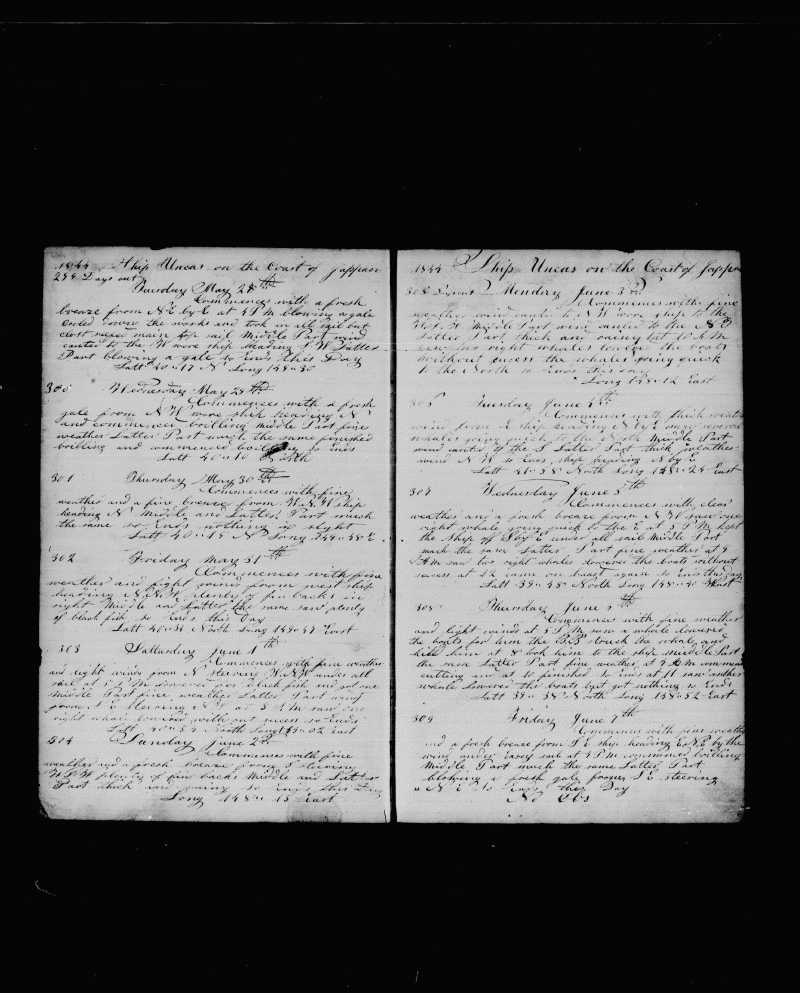 1844 Ship Uncas on the Coast of Jappan
299 Days out
Tuesday May 28th
Commences with a fresh
breeze from NE by E at 4 P M blowing a gale
cooled down the works and took in all sail but
close reefed main top sail Middle Part wind
canted to the W wore ship heading S W Latter
Part blowing a gale so Ends this Day
Latt 40 = 17 N Long 148 = 30
300 Wednesday May 29th
Commences with a fresh
gale from N W wore ship heading N
and commences boilling middle Part fine
weather Latter Part much the same finished
boilling and commenced to Ends
Latt 40 = 10 North
301 Thursday May 30th
Commences with fine
weather and a fine breeze from W N W ship
heading N Middle and Latter Part much
the same so Ends nothing in sight
Latt 40 = 15 N Long 149 = 48 E
302 Friday May 31th
Commences with fine
weather and light winds from west ship
heading N N W plenty of fin backs in
sight Middle and Latter the same saw plenty
of black fish so Ends this Day
Latt 40 = North Long 149 = 47 East
303 Satturday June 1th
Commences with fine weather
and light winds from N steering W N W under all
sail at 5 P M lowered for black fish and got one
middle Part fine weather Latter Part wind
from S E steering N W at 5 A M saw one
right whale lowered without sucess so Ends
Latt 40 = North Long 149 = 02 East
304 Sunday June 2d
Commences with fine
weather and a fresh breeze from S steering
W N W plenty of fin backs Middle and Latter
Part thick and rainy so Ends this Day
Long 148 = 15 East
1844 Ship Uncas on the Coast of Jappan
305 Days out Monday June 3rd
Commences with fine
weather wind canted to N W wore ship to the
W Middle Part wind canted to the N E
Latter Part thick and rainy at 10 A M
saw two right whales lowered the boats
without sucess the whales going quick
to the North so Ends this day
Long 148 = 12 East
306 Tuesday June 4th
Commences with thick weather
wind from E ship heading N by E saw several
whales going quick to the North Middle Part
wind canted to the S Latter Part thick weather
wind N W so Ends ship heading N by E
Latt 40 = 38 North Long 148 = 24 East
307 Wednesday June 5th
Commences with clear
weather and a fresh breeze from N W saw one
right whale going quick to the E at 5 P M kept
the ship off S by E under all sail Middle Part
much the same Latter Part fine weather at 9
A M saw two right whales lowered the boats without
sucess at 12 came on board again so Ends this day
Latt 39 = 48 North Long 148 = 40 East
308 Thursday June 6th
Commences with fine weather
and light winds at 5 P M saw a whale lowered
the boats for him the B B struck the whale and
kild him at 8 took him to the ship middle Part
the same Latter Part fine weather at 4 A M commenced
cutting and at 10 finished so Ends at 11 saw another
whale lowered the boats but got nothing so Ends
Latt 39 = 38 North Long 148 = 52 East
309 Friday June 7th
Commences with fine weather
and a fresh breeze from S E ship heading E N E by the
wind under easey sail at 3 P M commenced boilling
Middle Part much the same Latter Part
blowing a fresh gale from S E steering
N E so Ends this Day
No Obs